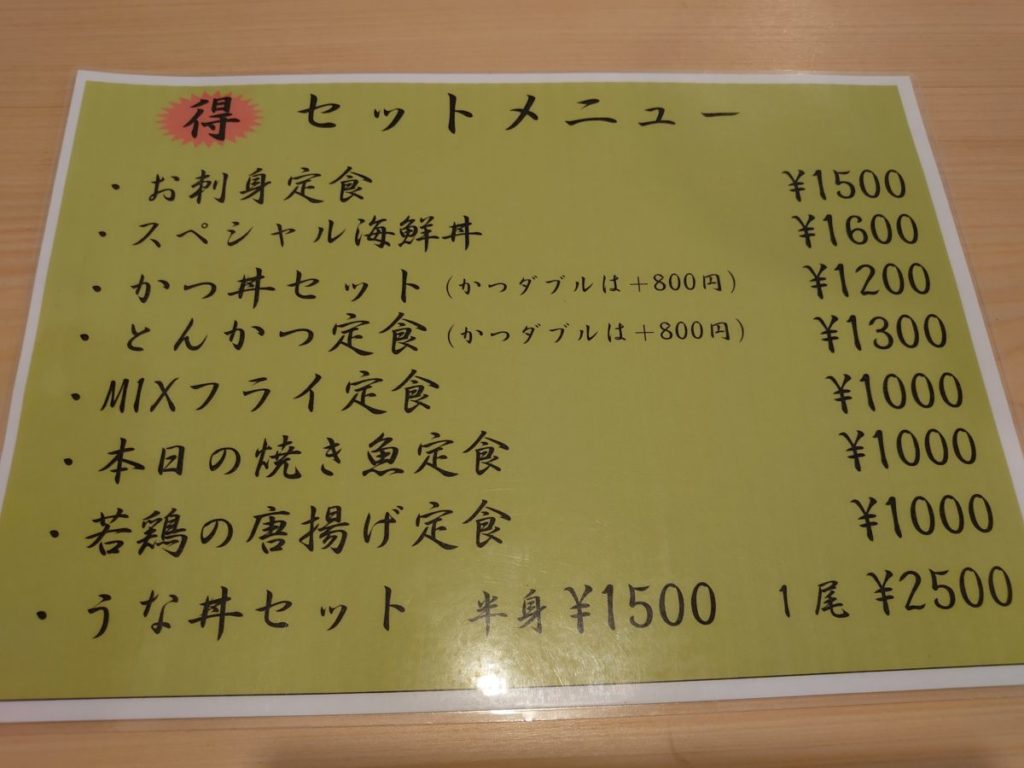 得 セットメニュー
・お刺身定食 ¥1500
・スペシャル海鮮丼 ¥1600
・かつ丼セット (かつダブルは+800円) ¥1200
・とんかつ定食 (かつダブルは+800円) ¥1300
・MIXフライ定食 ¥1000
・本日の焼き魚定食 ¥1000
・若鶏の唐揚げ定食 ¥1000
・うな丼セット 半身 ¥1500 1尾 ¥2500